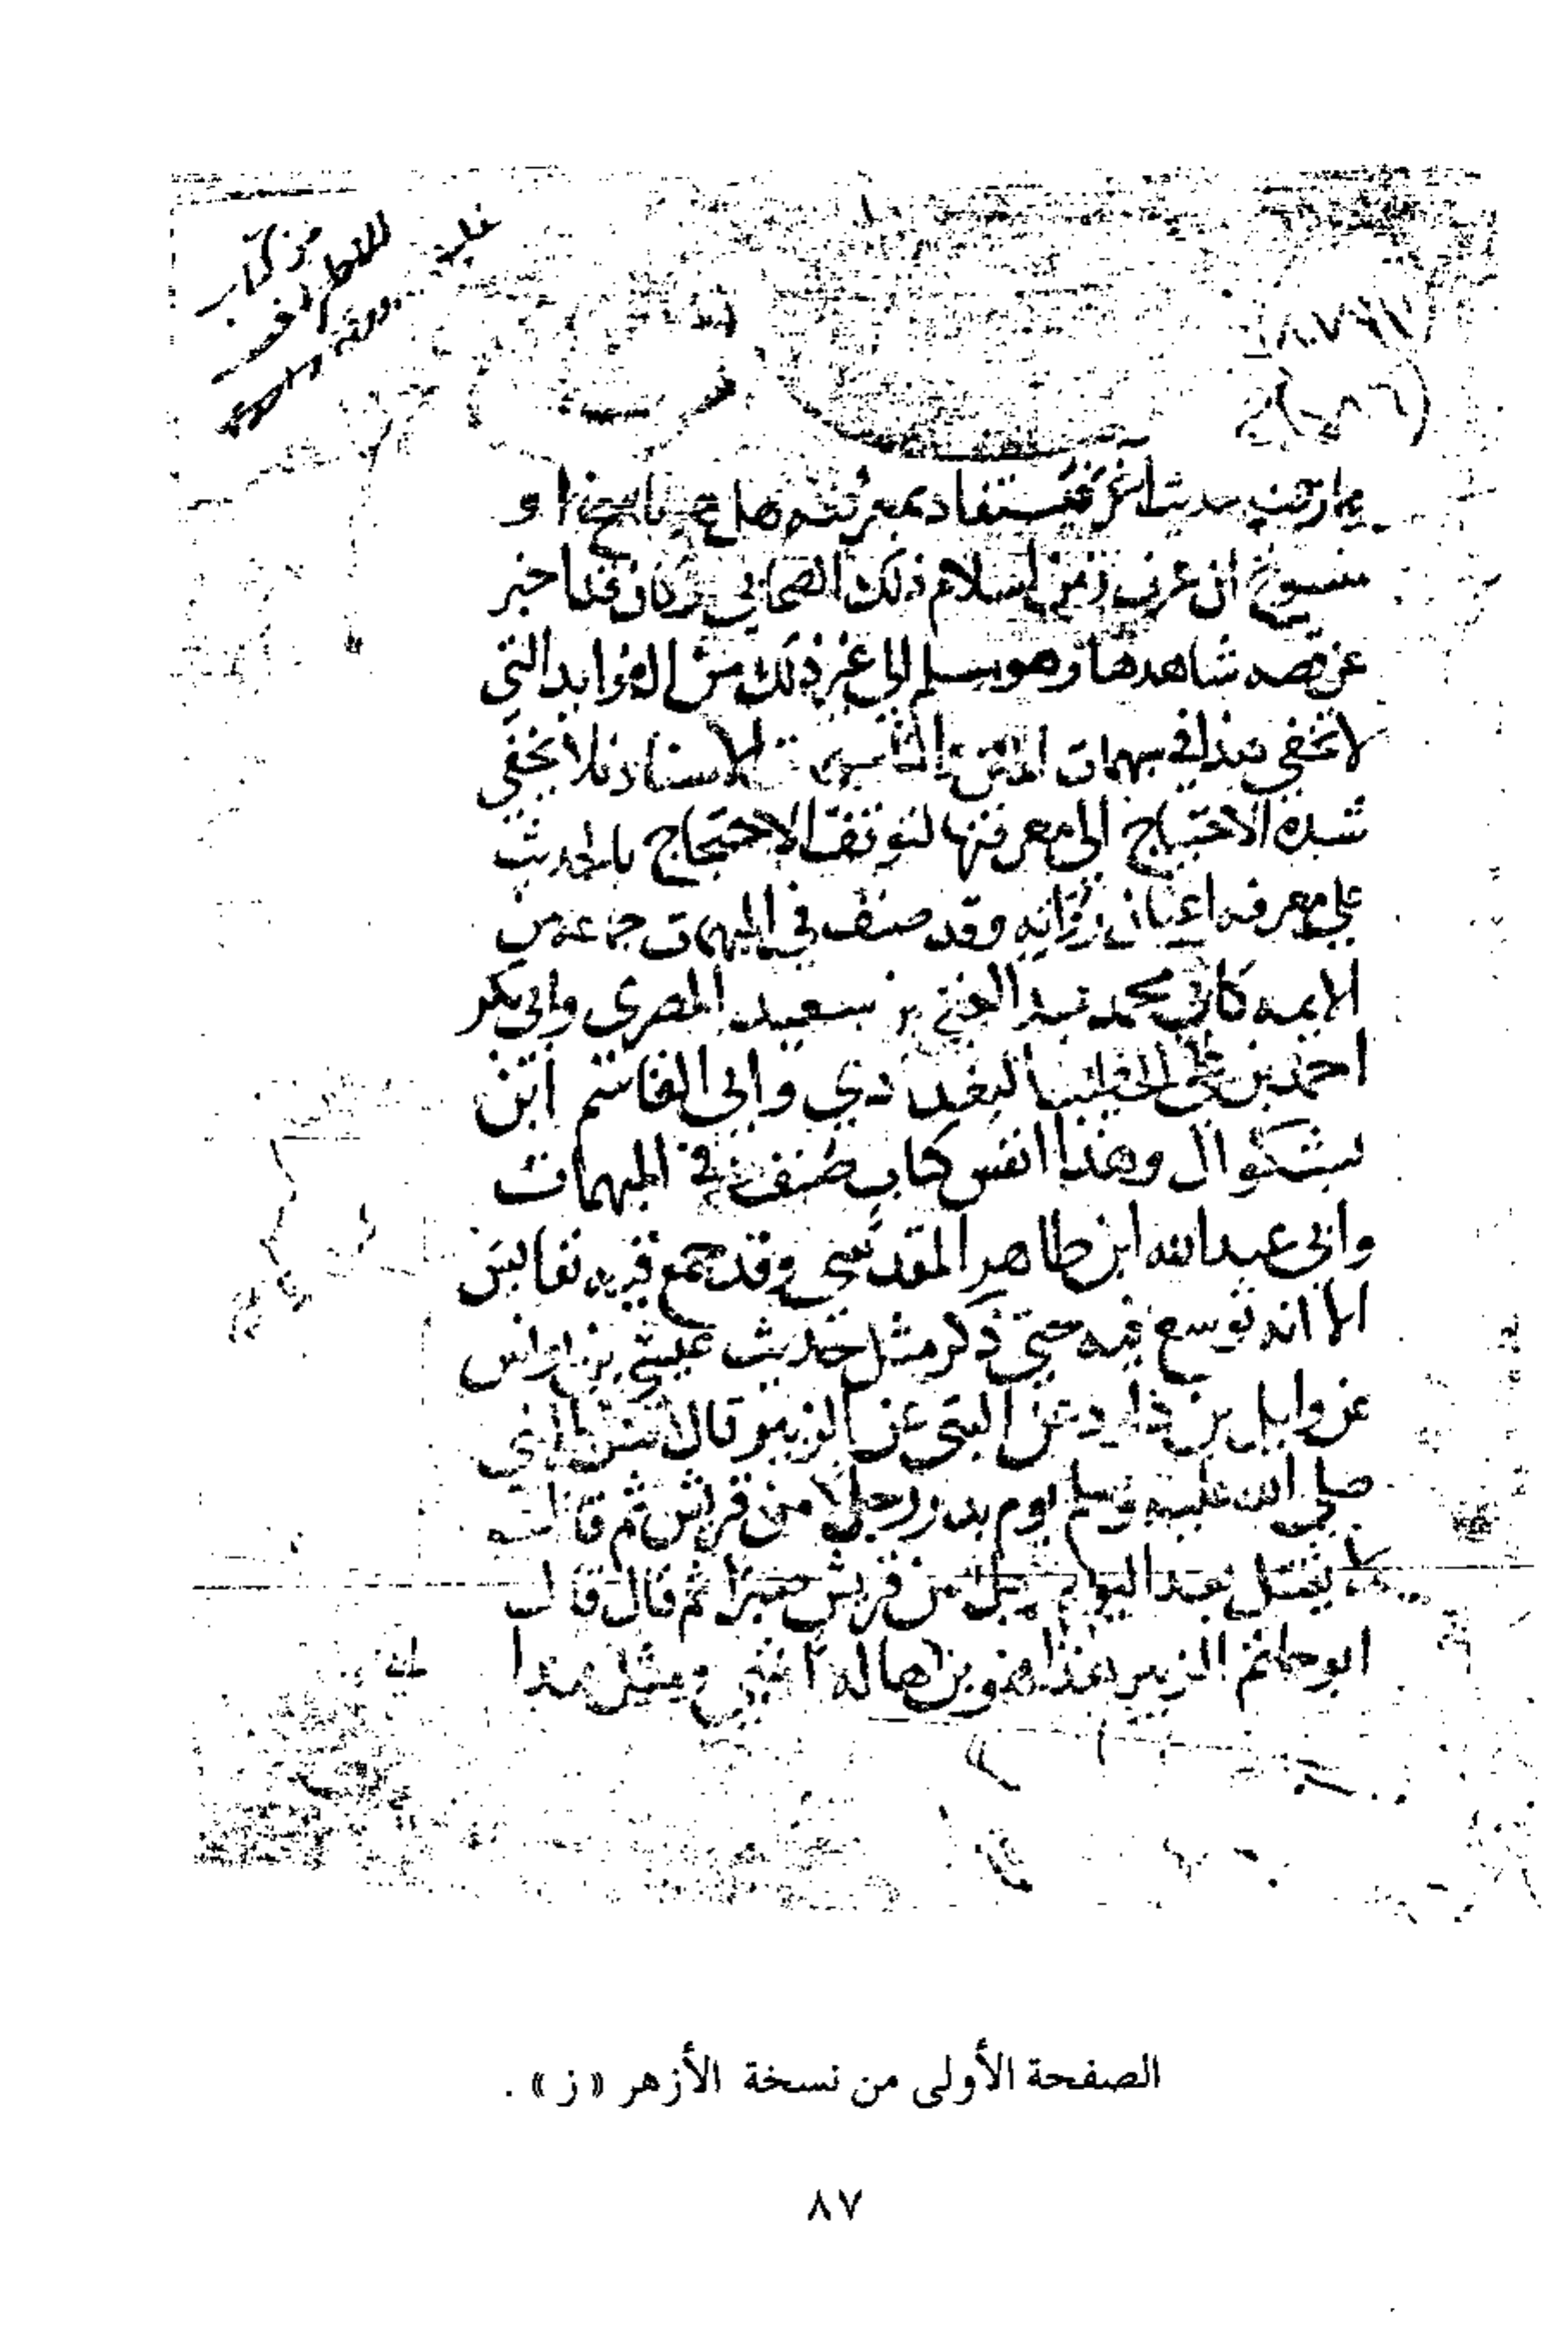 من كتاب
(٨٠٧٦١٧)
يعارضه حديث آخر فيستفاد بمعرفته هل هو ناسخ او
منسوخ ان عرف زمن اسلام ذلك الصحابي وكان قد اخبر
عن قصه شاهدها وهو مسلم الي غير ذلك من الفوايد التي
لا تخفي هذا في مبهمات المتن الاسناد فلا يخفي
شده الاحتياج الي معرفتها لتوقف الاحتجاج بالحديث
علي معرفه اعيان رواته وقد صنف في المبهمات جماعه من
الايمه كابي محمد عبد الغني بن سعيد المصري وابي بكر
احمد بن علي الخطيب البغدادي وابي القاسم ابن
بشكوال وهذا انفس كتاب صنف في المبهمات
وابي عبد الله ابن طاهر المقدسي وقد جمع فيه نفايس
الا انه توسع فيه حتي ذكر مثل حديث عيسي بن يونس
عن وايل بن داود عن البهي عن الزبير قال قتل النبي
صلي الله عليه وسلم يوم بدر رجلا من قريش ثم قال
لا يقتل بعد اليوم رجل من قريش صبرا ثم قال قال
ابو حاتم الزبير هذا هو بن ابي هاله مثل هذا
الصفحة الأولى من نسخة الأزهر « ز » .
٨٧